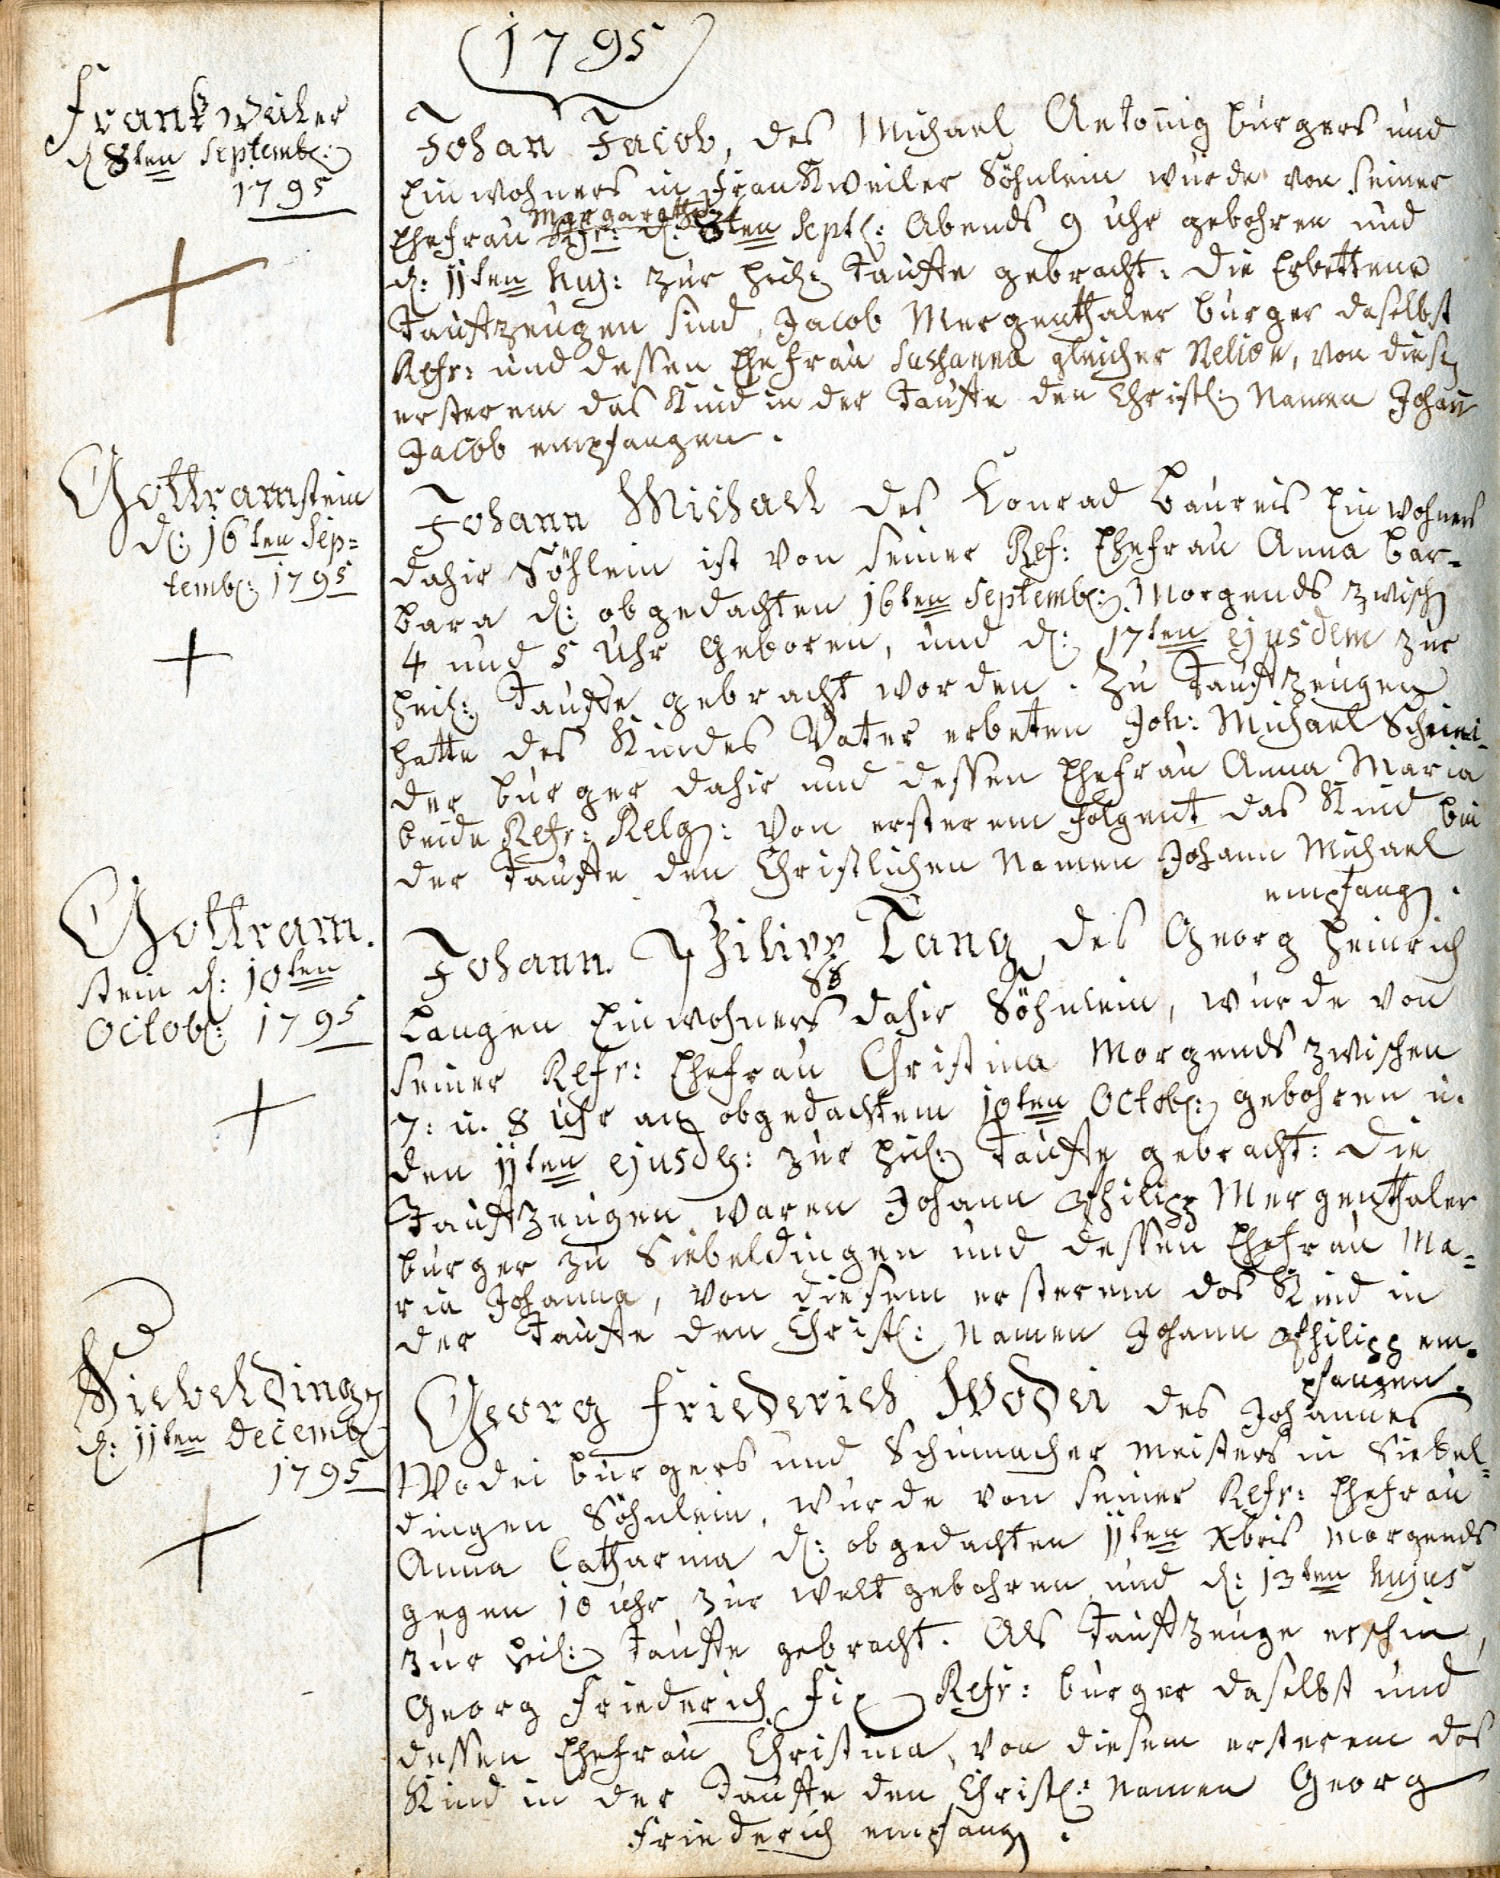 1795
Frankweiler
d 8ten Septemb:
1795
Johan Jacob, des Michael Antonig burgers und
Einwohners in Frankweiler Söhnlein wurde von seiner
Margaretha
Ehefrau d: 8ten Sept: Abends 9 uhr gebohren und
d: 11ten huj: zur heil: Tauffe gebracht. die Erbettene
Taufzeugen sind, Jacob Mergenthaler burger daselbst
Refr: und dessen Ehefrau Susanna gleicher Relion, von dies
ersterem das Kind in der Tauffe den Christl: Namen Johan
Jacob empfangen.
Gottramstein
d: 16ten Sep=
temb: 1795
Johann Michael des Konrad Baureis Einwohners
dahir Söhlein ist von seiner Ref: Ehefrau Anna Bar=
bara d: obgedachten 16ten Septemb: Morgends zwisch
4 und 5 Uhr Geboren, und d: 17ten ejusdem zur
heil: Tauffe gebracht worden. Zu Taufzeugen
hatte des Kindes Vater erbeten Joh: Michael Schnei=
der burger dahir und dessen Ehefrau Anna Maria
beide Refr: Relg: von ersterem folgent das Kind bei
der Tauffe den Christlichen Namen Johann Michael
empfang.
Gottram.
stein d: 10ten
Octob: 1795
Johann Philipp Lang des Georg Heinrich
Langen Einwohners dahir Söhnlein, wurde von
seiner Refr: Ehefrau Christina Morgends zwischen
7: u. 8 uhr an obgedachtem 10ten Octob: gebohren u.
den 11ten ejusd: zur heil: Tauffe gebracht: Die
Taufzeugen waren Johann Philipp Mergenthaler
burger zu Siebeldingen und dessen Ehefrau Ma=
ria Johanna, von diesem ersterem das Kind in
der Tauffe den Christl: Namen Johann Philipp em=
pfangen.
Siebelding
d: 11ten Decemb
1795
Georg Friederich Wodei des Johannes
Wodei burgers und Schumacher meisters in Siebel=
dingen Söhnlein, wurde von seiner Refr: Ehefrau
Anna Catharina d: obgedachten 11ten Xbris morgends
gegen 10 uhr zur welt gebohren und d: 13ten hujus
zur heil: Tauffe gebracht. Als Taufzeuge erschin,
Georg Friederich Fix Refr: burger daselbst und
dessen Ehefrau Christina, von diesem ersterem das
Kind in der Tauffe den Christl: Namen Georg
Friederich empfang.